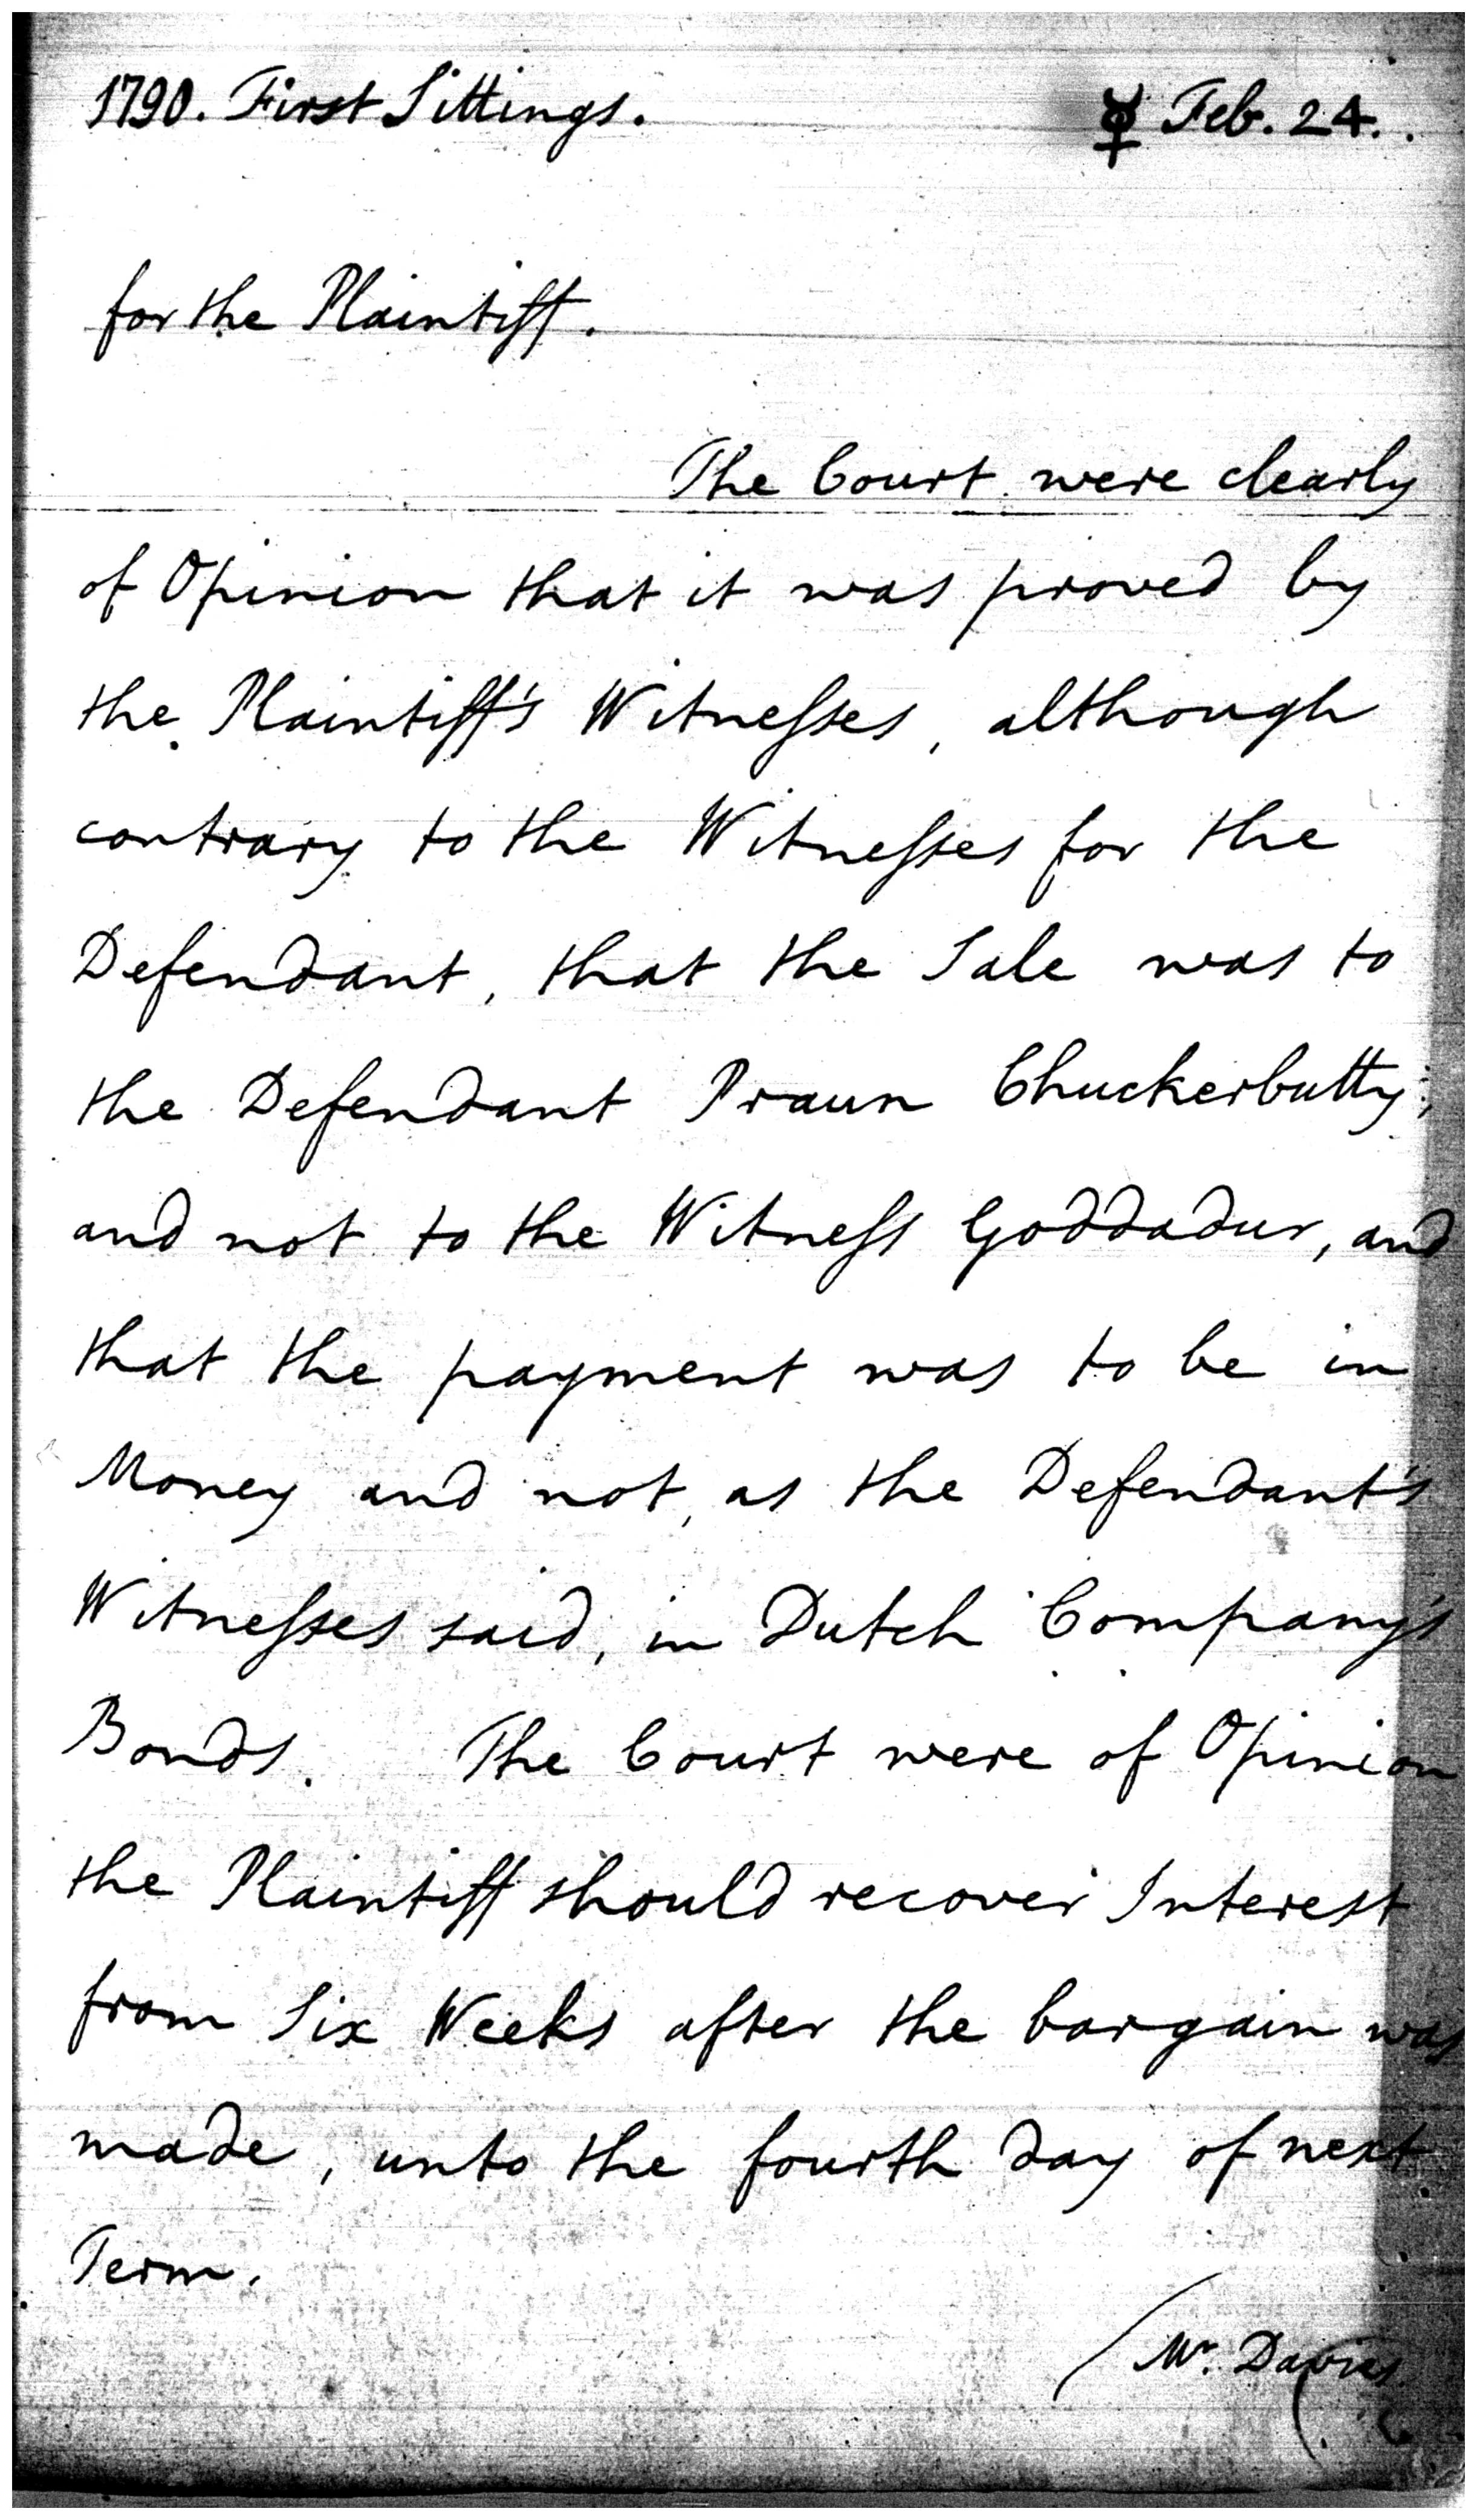 1790. First Sittings. ☿ Feb. 24.
for the Plaintiff.
The Court were clearly
of Opinion that it was proved by
the Plaintiff's Witneſses, although
contrary to the Witneſses for the
Defendant, that the Sale was to
the Defendant Praun Chuckerbutty;
and not to the Witneſs Goddadur, and
that the payment was to be in
Money and not, as the Defendant's
Witneſses said, in Dutch Company's
Bonds. The Court were of Opinion
the Plaintiff should recover Interest
from Six Weeks after the bargain was
made, unto the fourth day of next
Term.
Mr. Davies